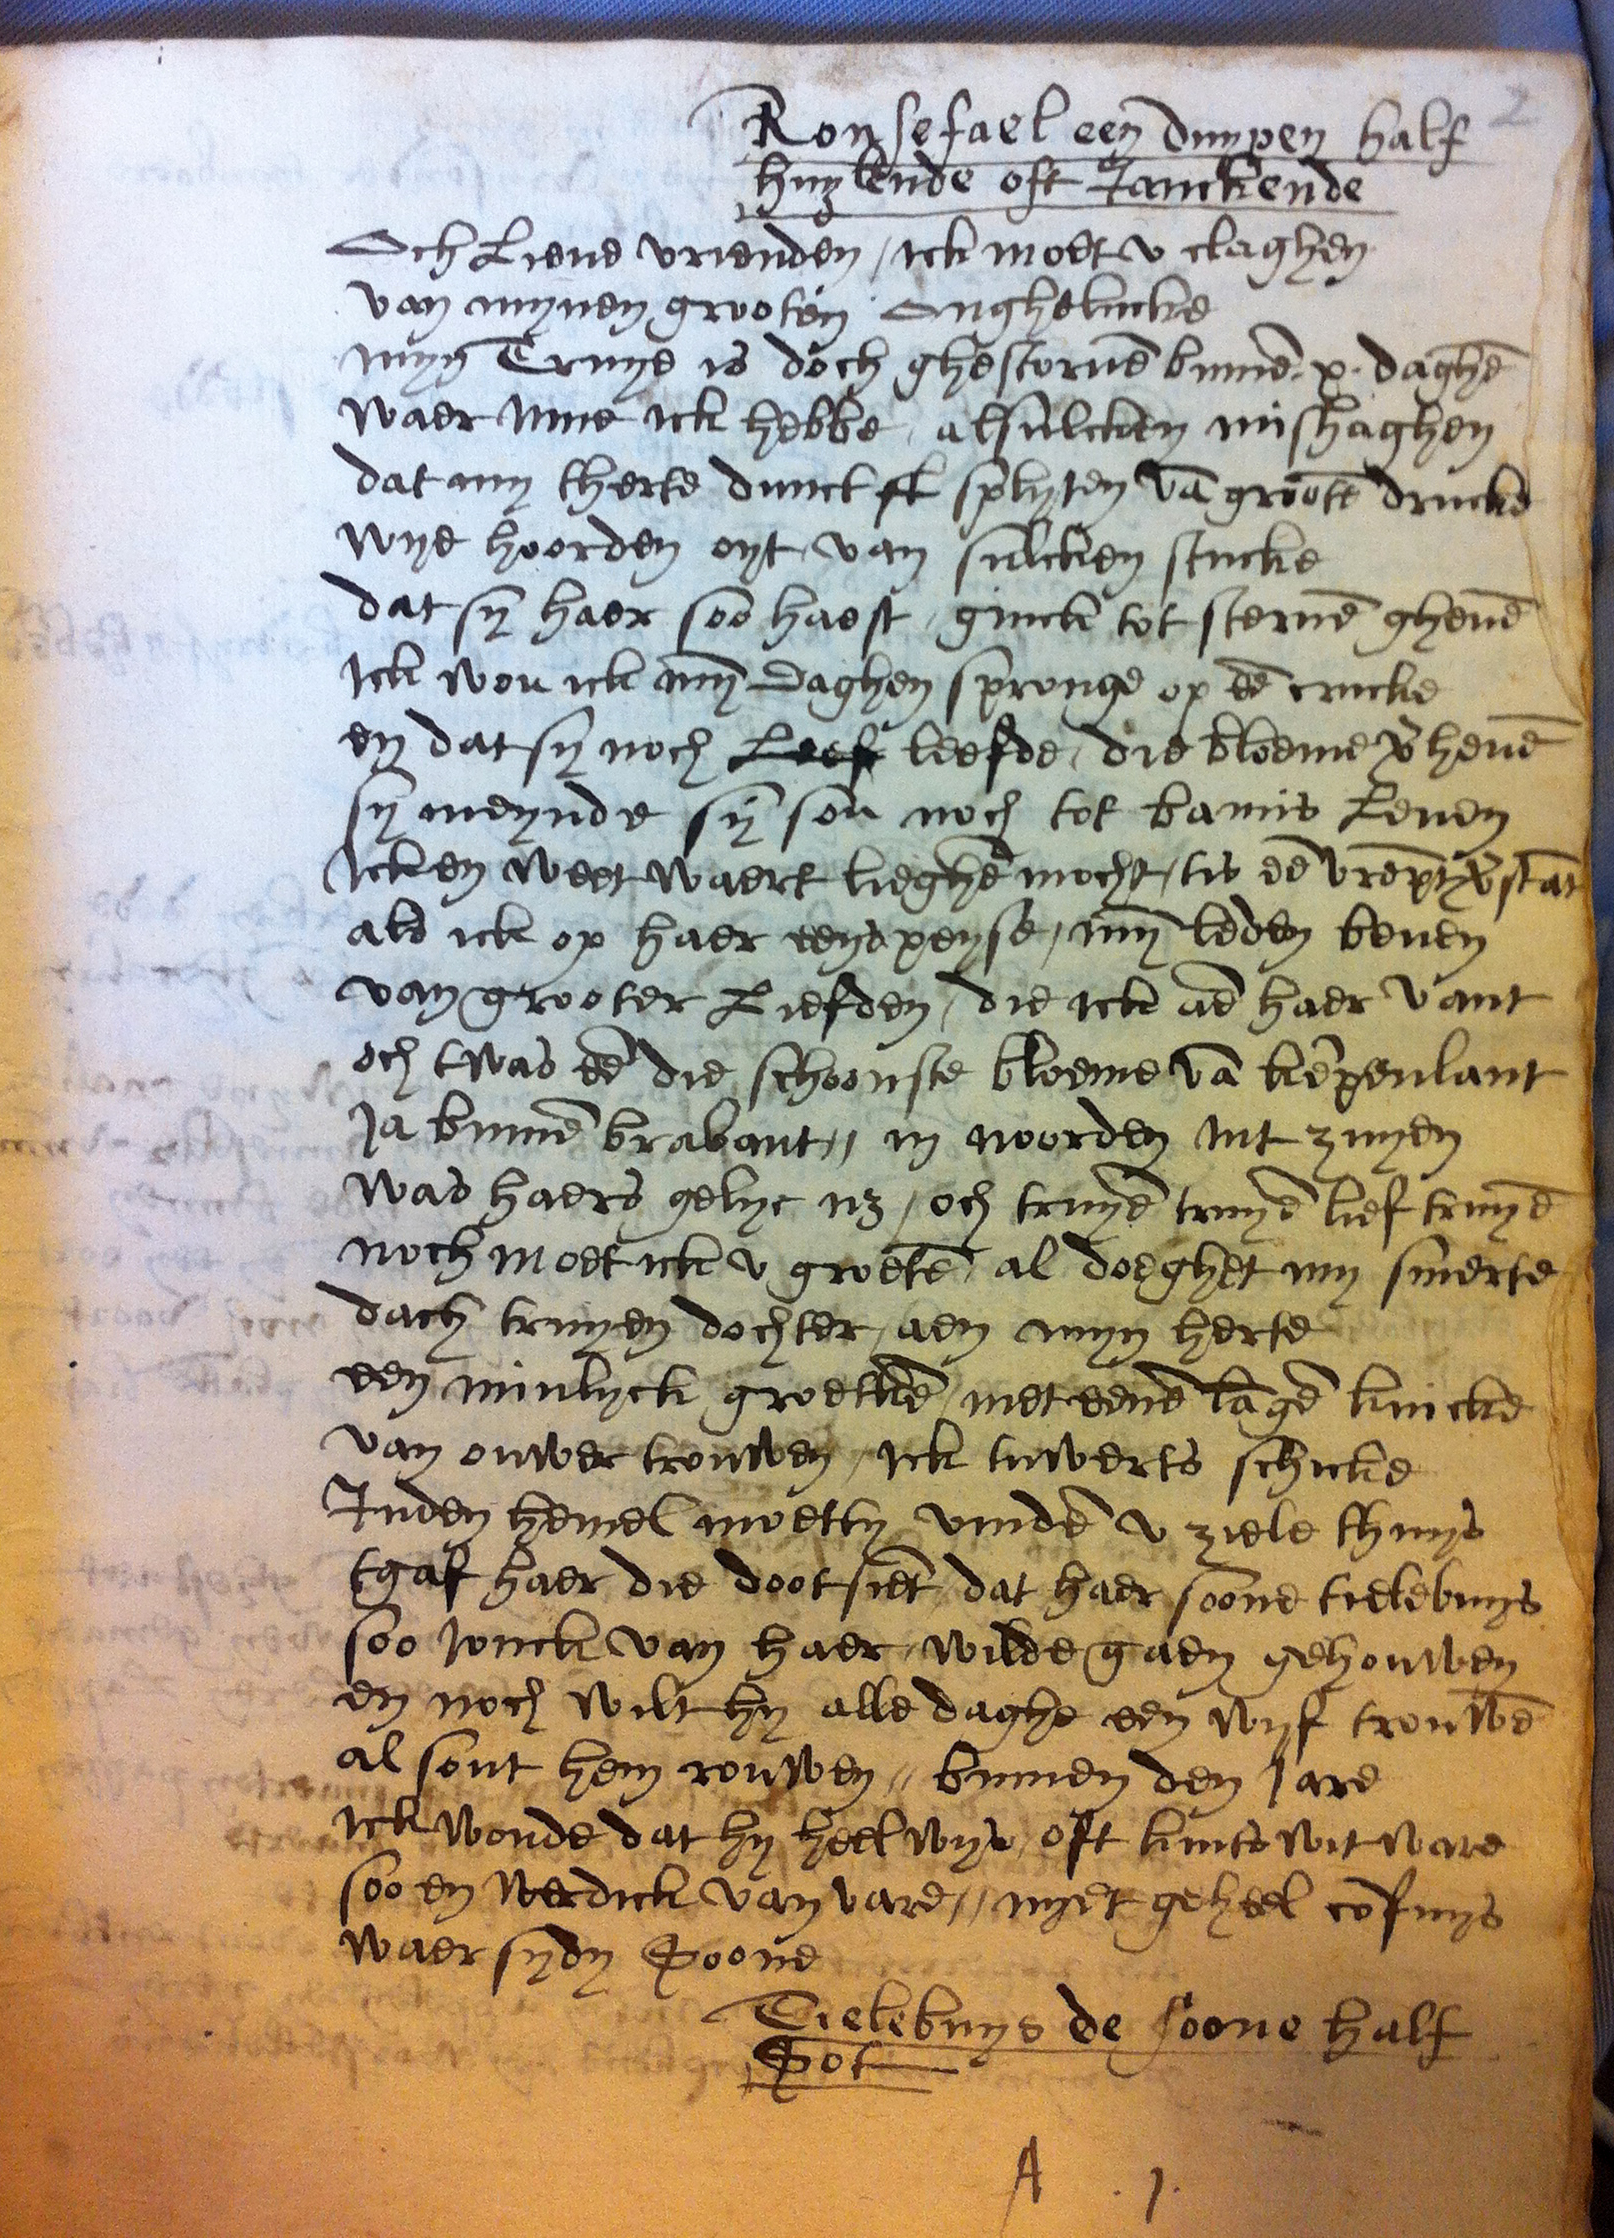 2
Ronsefael een duypen half
huylende oft Janckende
Och Lieue vrienden / ick moet v claghen
van mynen grooten Onghelucke
myn Truye is doch ghestoruē binnē .x. daghē
waer Inne ick hebbe / alsulcken mishaghen
dat my therte dunct splyten vā grootē drucke
wye hoorden oyt van sulcken stucke
dat sy haer soo haest / ginck tot steruē gheuē
Ick wou ick myn daghen spronge op eē crucke
en dat sy noch leefde / die bloeme v̄heuē
sy meynde sy sou noch tot bamis Leuen
Ick en weet waert lieghē mocht / tis eē vreemt v̄stāt
als ick op haer eens peyse / myn leden beuen
van grooter Liefden / die ick aē haer vant
och twas eē die schoonste bloeme vā kēpenlant
Ja binnē brabant // in noorden Int zuyen
was haers gelyc nz / och truyē truyē lief truyē
noch moet ick v groetē / al doeghet my smerte
dach truyen dochter / aen myn herte
een minlyck groetkē / met eenē lāgē knicke
van ouwer trouwen / ick tuwerts schicke
Inden hemel moetty vindē v ziele thuys
tgaf haer die doot siet / dat haer soone tielebuys
soo Jonck van haer / wilde gaen gehouwen
en noch wilt hy alle daghe een wyf trouwē
al sout hem rouwen // binnen den Jare
Ick woude dat hy heel wys / oft kints wit ware
soo en werdick van vare // nyet geheel cōfuys
waer sydy Soone
Tielebuys de soone half
Sot
A .j.